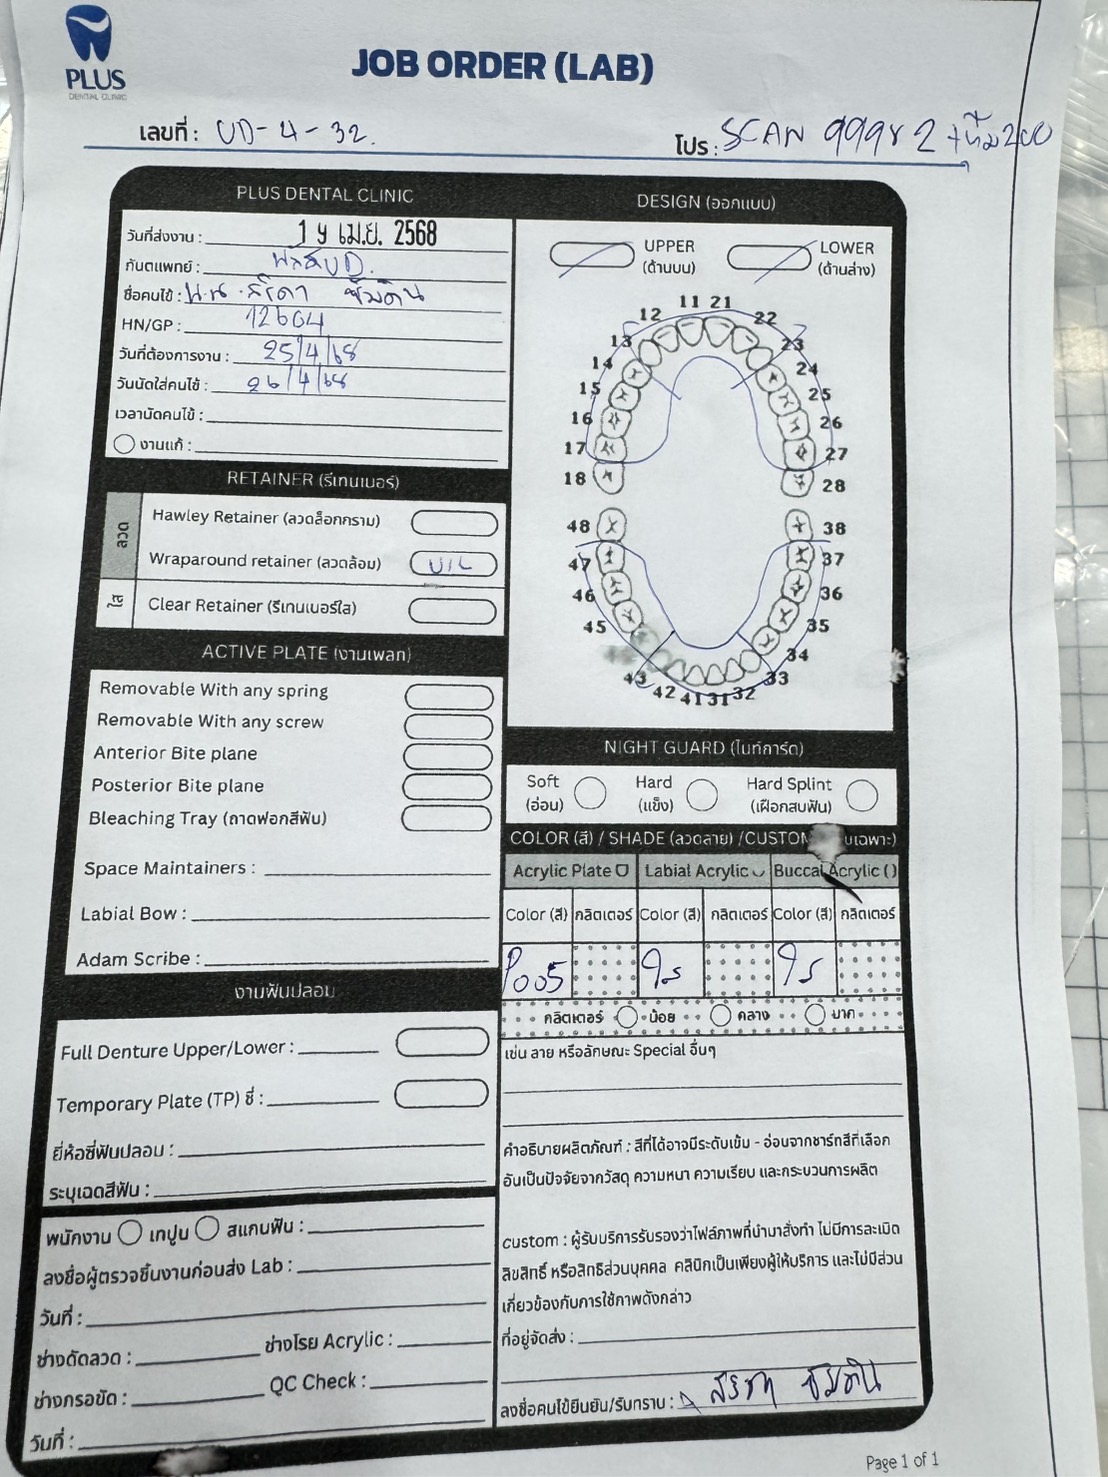 PLUS
DENTAL CLINIC
JOB ORDER (LAB)
เลขที่ : UD-4-32.
โปร : SCAN 999x2 +ทิม200
PLUS DENTAL CLINIC
วันที่ส่งงาน : 19 เม.ย. 2568
ทันตแพทย์ :
ชื่อคนไข้ : น.ส.
HN/GP : 12604
วันที่ต้องการงาน : 25/4/68
วันนัดใส่คนไข้ : 26/4/68
เวลานัดคนไข้ :
งานแก้ :
RETAINER (รีเทนเนอร์)
ลวด
Hawley Retainer (ลวดล็อกกราม)
Wraparound retainer (ลวดล้อม) U/L
ใส
Clear Retainer (รีเทนเนอร์ใส)
ACTIVE PLATE (งานเพลท)
Removable With any spring
Removable With any screw
Anterior Bite plane
Posterior Bite plane
Bleaching Tray (ถาดฟอกสีฟัน)
Space Maintainers :
Labial Bow :
Adam Scribe :
งานฟันปลอม
Full Denture Upper/Lower :
Temporary Plate (TP) ซี่ :
ยี่ห้อซี่ฟันปลอม :
ระบุเฉดสีฟัน :
พนักงาน เทปูน สแกนฟัน :
ลงชื่อผู้ตรวจชิ้นงานก่อนส่ง Lab :
วันที่ :
ช่างดัดลวด : ช่างโรย Acrylic :
ช่างกรอขัด : QC Check :
วันที่ :
DESIGN (ออกแบบ)
UPPER
(ด้านบน)
LOWER
(ด้านล่าง)
11 21
12 22
13 23
14 24
15 25
16 26
17 27
18 28
48 38
47 37
46 36
45 35
34
43 33
42 41 31 32
NIGHT GUARD (ไนท์การ์ด)
Soft
(อ่อน)
Hard
(แข็ง)
Hard Splint
(เฝือกสบฟัน)
COLOR (สี) / SHADE (ลวดลาย) /CUSTOM
Acrylic Plate Labial Acrylic Buccal Acrylic ( )
Color (สี) กลิตเตอร์ Color (สี) กลิตเตอร์ Color (สี) กลิตเตอร์
P005 ใส ใส
กลิตเตอร์ น้อย คลาง มาก
เช่น ลาย หรือลักษณะ Special อื่นๆ
คำอธิบายผลิตภัณฑ์ : สีที่ได้อาจมีระดับเข้ม - อ่อนจากชาร์ทสีที่เลือก
อันเป็นปัจจัยจากวัสดุ ความหนา ความเรียบ และกระบวนการผลิต
custom : ผู้รับบริการรับรองว่าไฟล์ภาพที่นำมาสั่งทำ ไม่มีการละเมิด
ลิขสิทธิ์ หรือสิทธิส่วนบุคคล คลินิกเป็นเพียงผู้ให้บริการ และไม่มีส่วน
เกี่ยวข้องกับการใช้ภาพดังกล่าว
ที่อยู่จัดส่ง :
ลงชื่อคนไข้ยืนยัน/รับทราบ :
Page 1 of 1